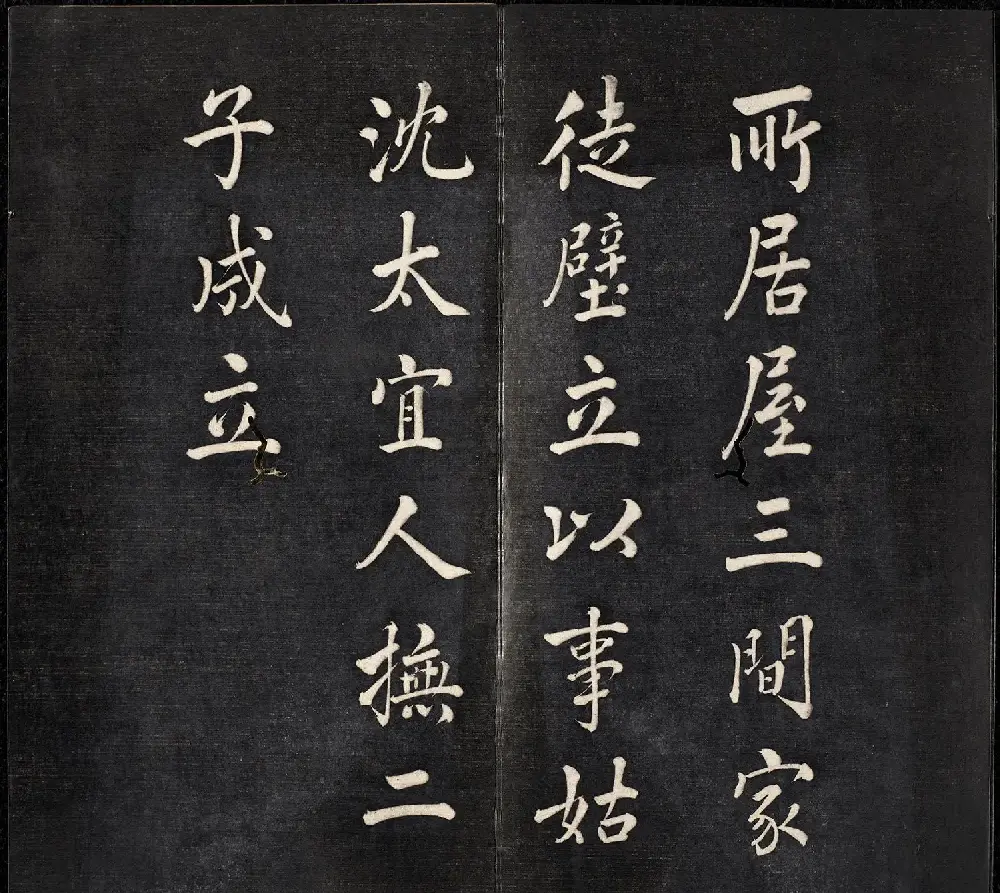 所居屋三間家
徒壁立以事姑
沈太宜人撫二
子成立